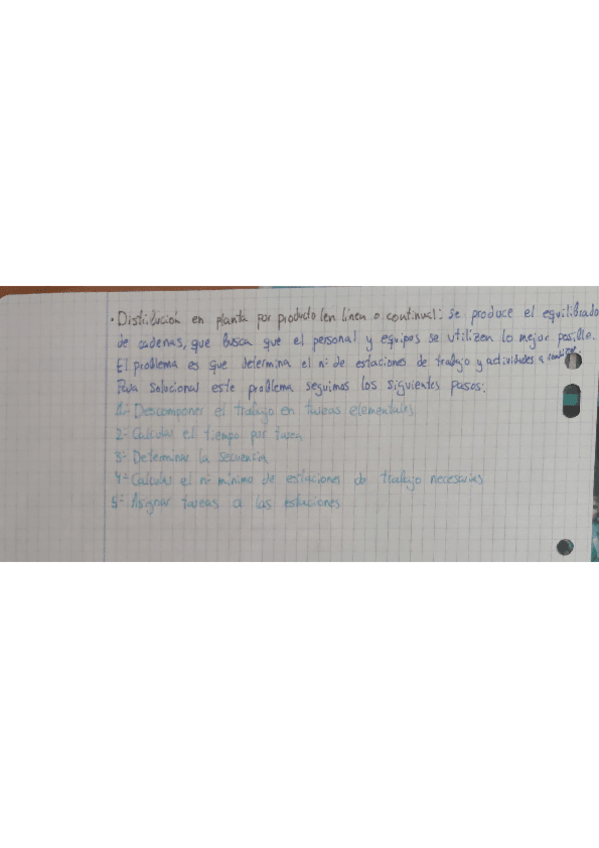 · Distribución en planta por producto (en línea o continua): se produce el equilibrado
de cadenas, que busca que el personal y equipos se utilizen lo mejor posible.
El problema es que determina el nº de estaciones de trabajo y actividades a
Para solucionar este problema seguimos los siguientes pasos:
1- Descomponer el trabajo en tareas elementales
2- Calcular el tiempo por tarea
3- Determinar la secuencia
4- Calcular el nº mínimo de estaciones de trabajo necesarias
5- Asignar tareas a las estaciones